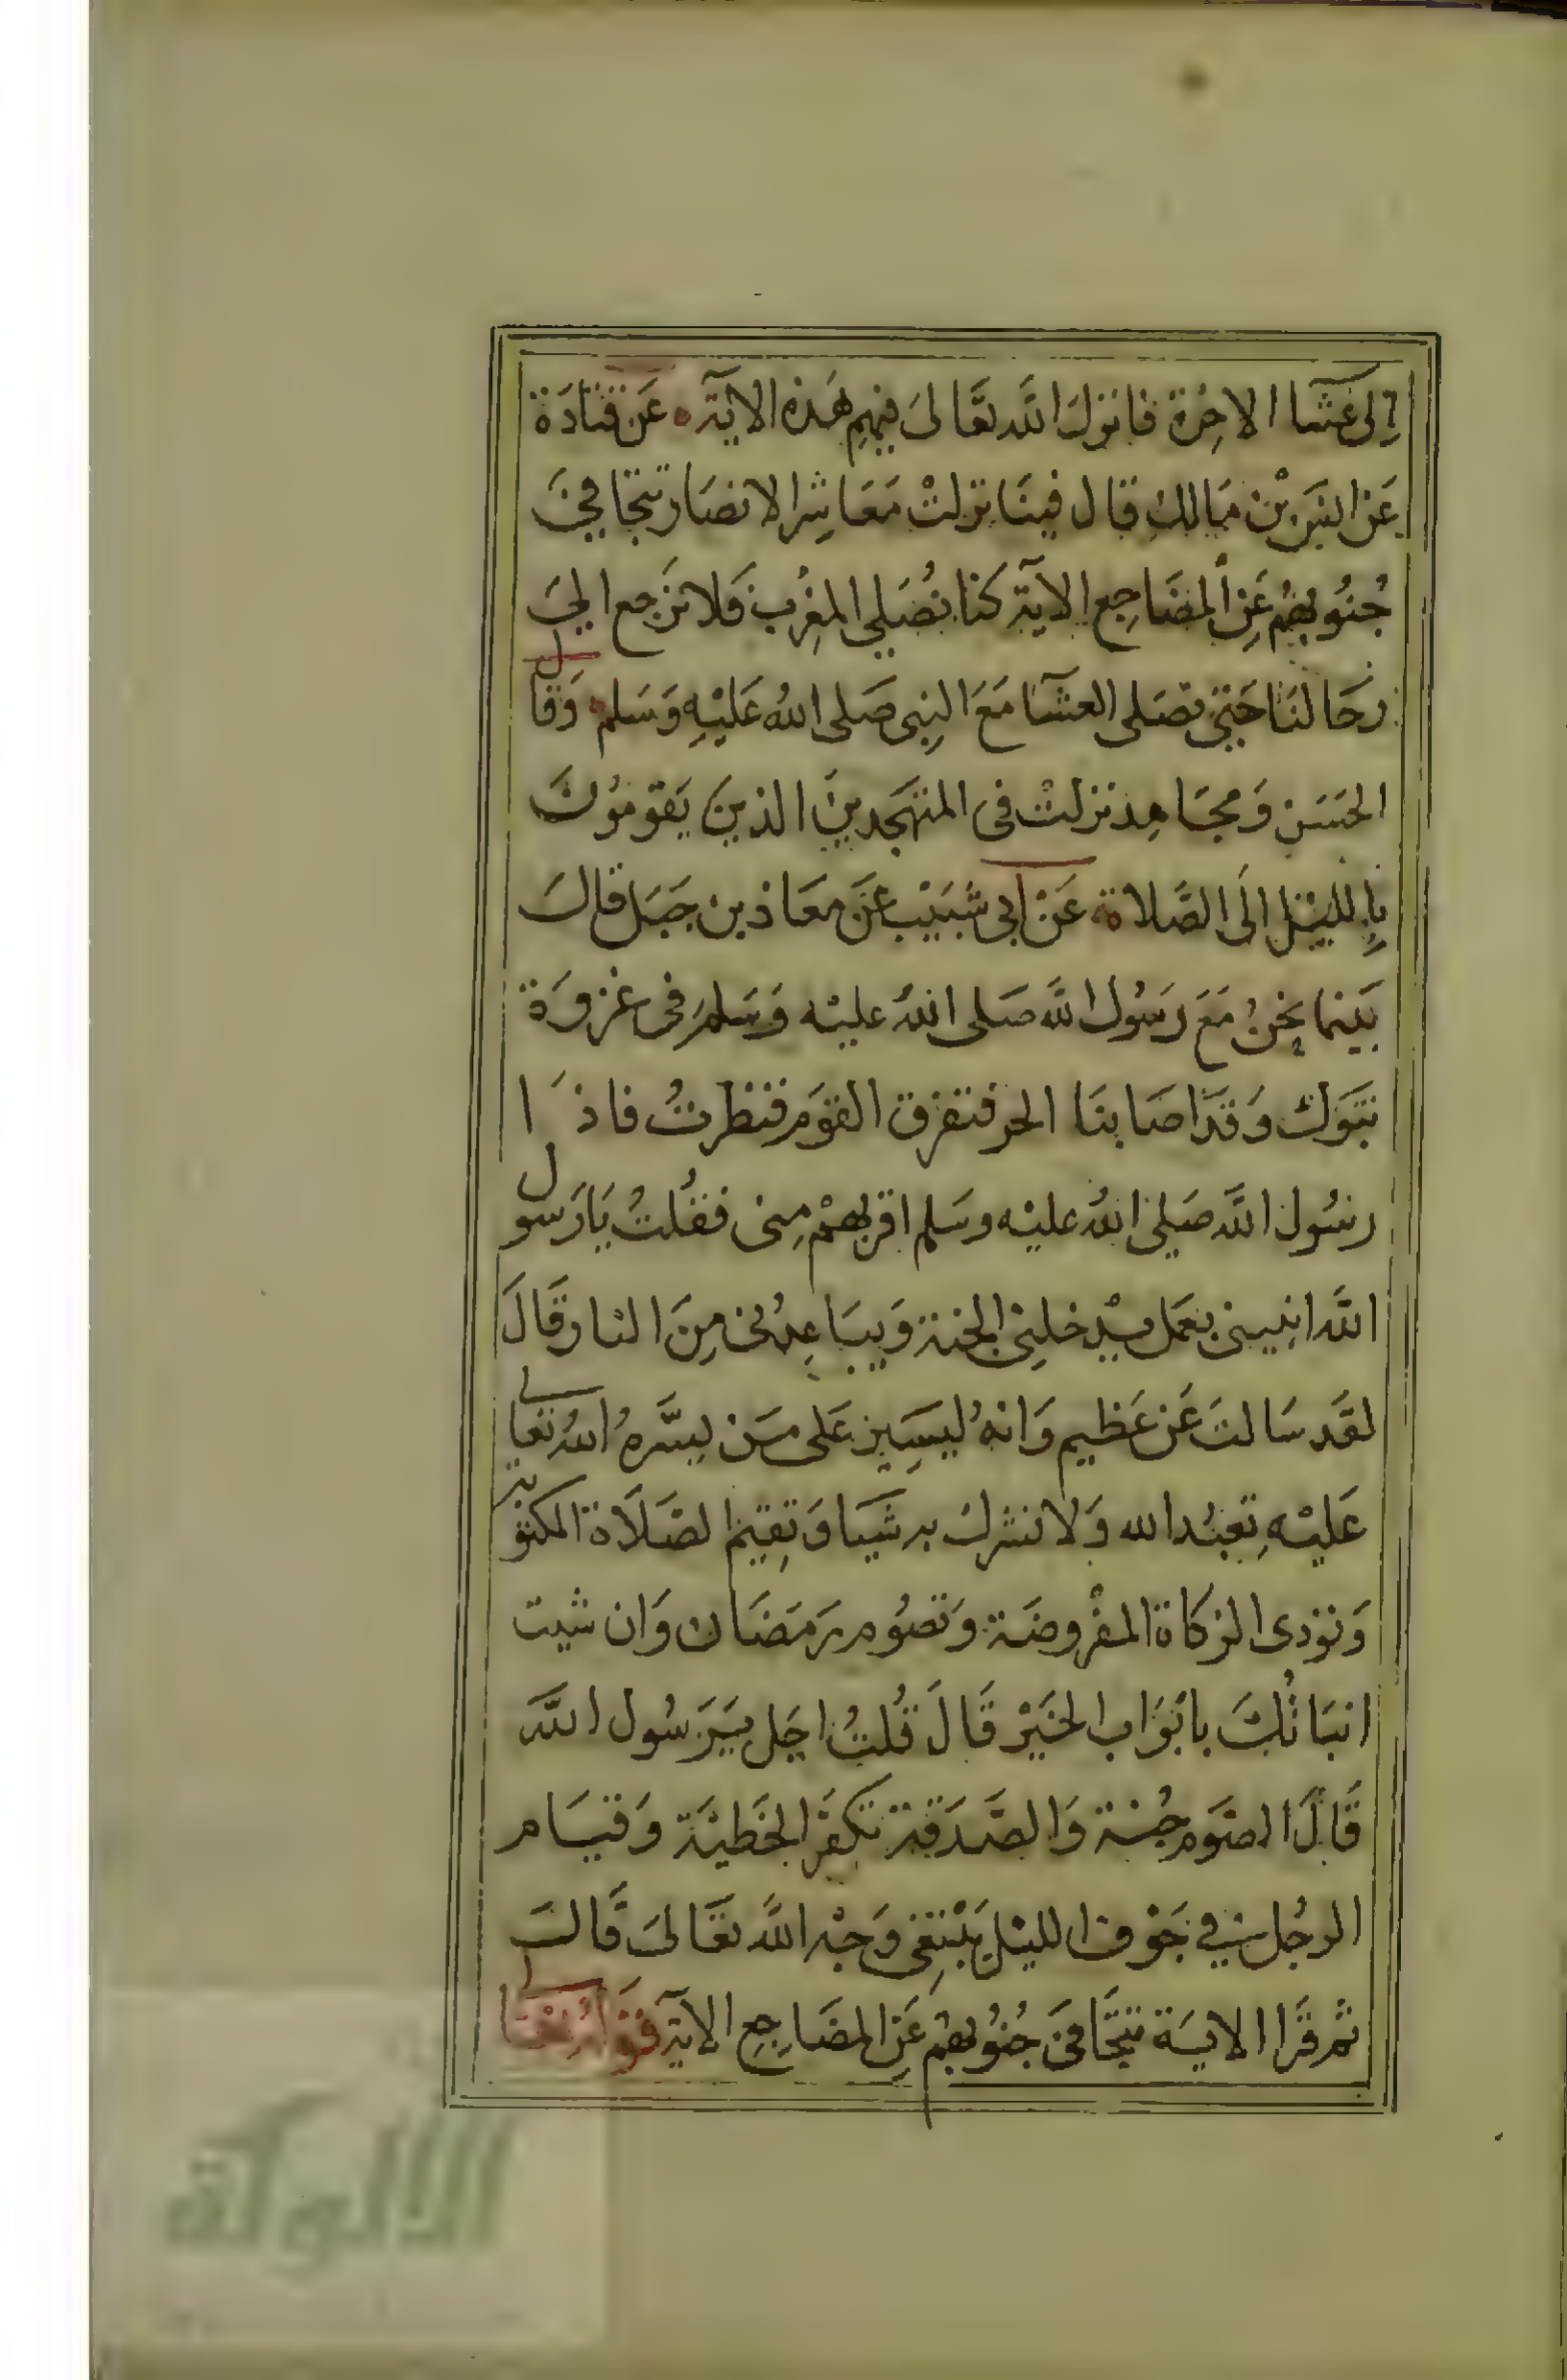 الى عشآا الاخرة فانزل الله تعالى فيهم هذه الآية ه عن قتادة
عن انس بن مالك قال فينا نزلت معاشر الانصار تتجافي
جنوبهم عن المضاجع الآية كنا نصلي المغرب فلا نرجع الي
رحالنا حتى نصلى العشآا مع النبى صلى الله عليه وسلم ه وقال
الحسن ومجاهد نزلت فى المتهجدين الذين يقومون
بالليل الى الصلاة ه عن ابى شبيب عن معاذ بن جبل قال
بينما نحن مع رسول الله صلى الله عليه وسلم فى غزوة
تبوك وقد اصابنا الحر فتفرق القوم فنظرت فاذا
رسول الله صلى الله عليه وسلم اقربهم منى فقلت يا رسول
الله انبينى بعمل يدخلنى الجنة ويباعدنى من النار قال
لقد سالت عن عظيم وانه ليسير على من يسره الله تعالى
عليه تعبد الله ولا تشرك به شيا وتقيم الصلاة المكتوبة
وتودى الزكاة المفروضة وتصوم رمضان وان شيت
انباتك بابواب الخير قال قلت اجل يرسول الله
قال الصوم جنة والصدقة تكفر الخطية وقيام
الرجل في جوف الليل يبتغى وجه الله تعالى قال
ثم قرا الاية تتجافى جنوبهم عن المضاجع الآية قوله تعالى
الألوكة